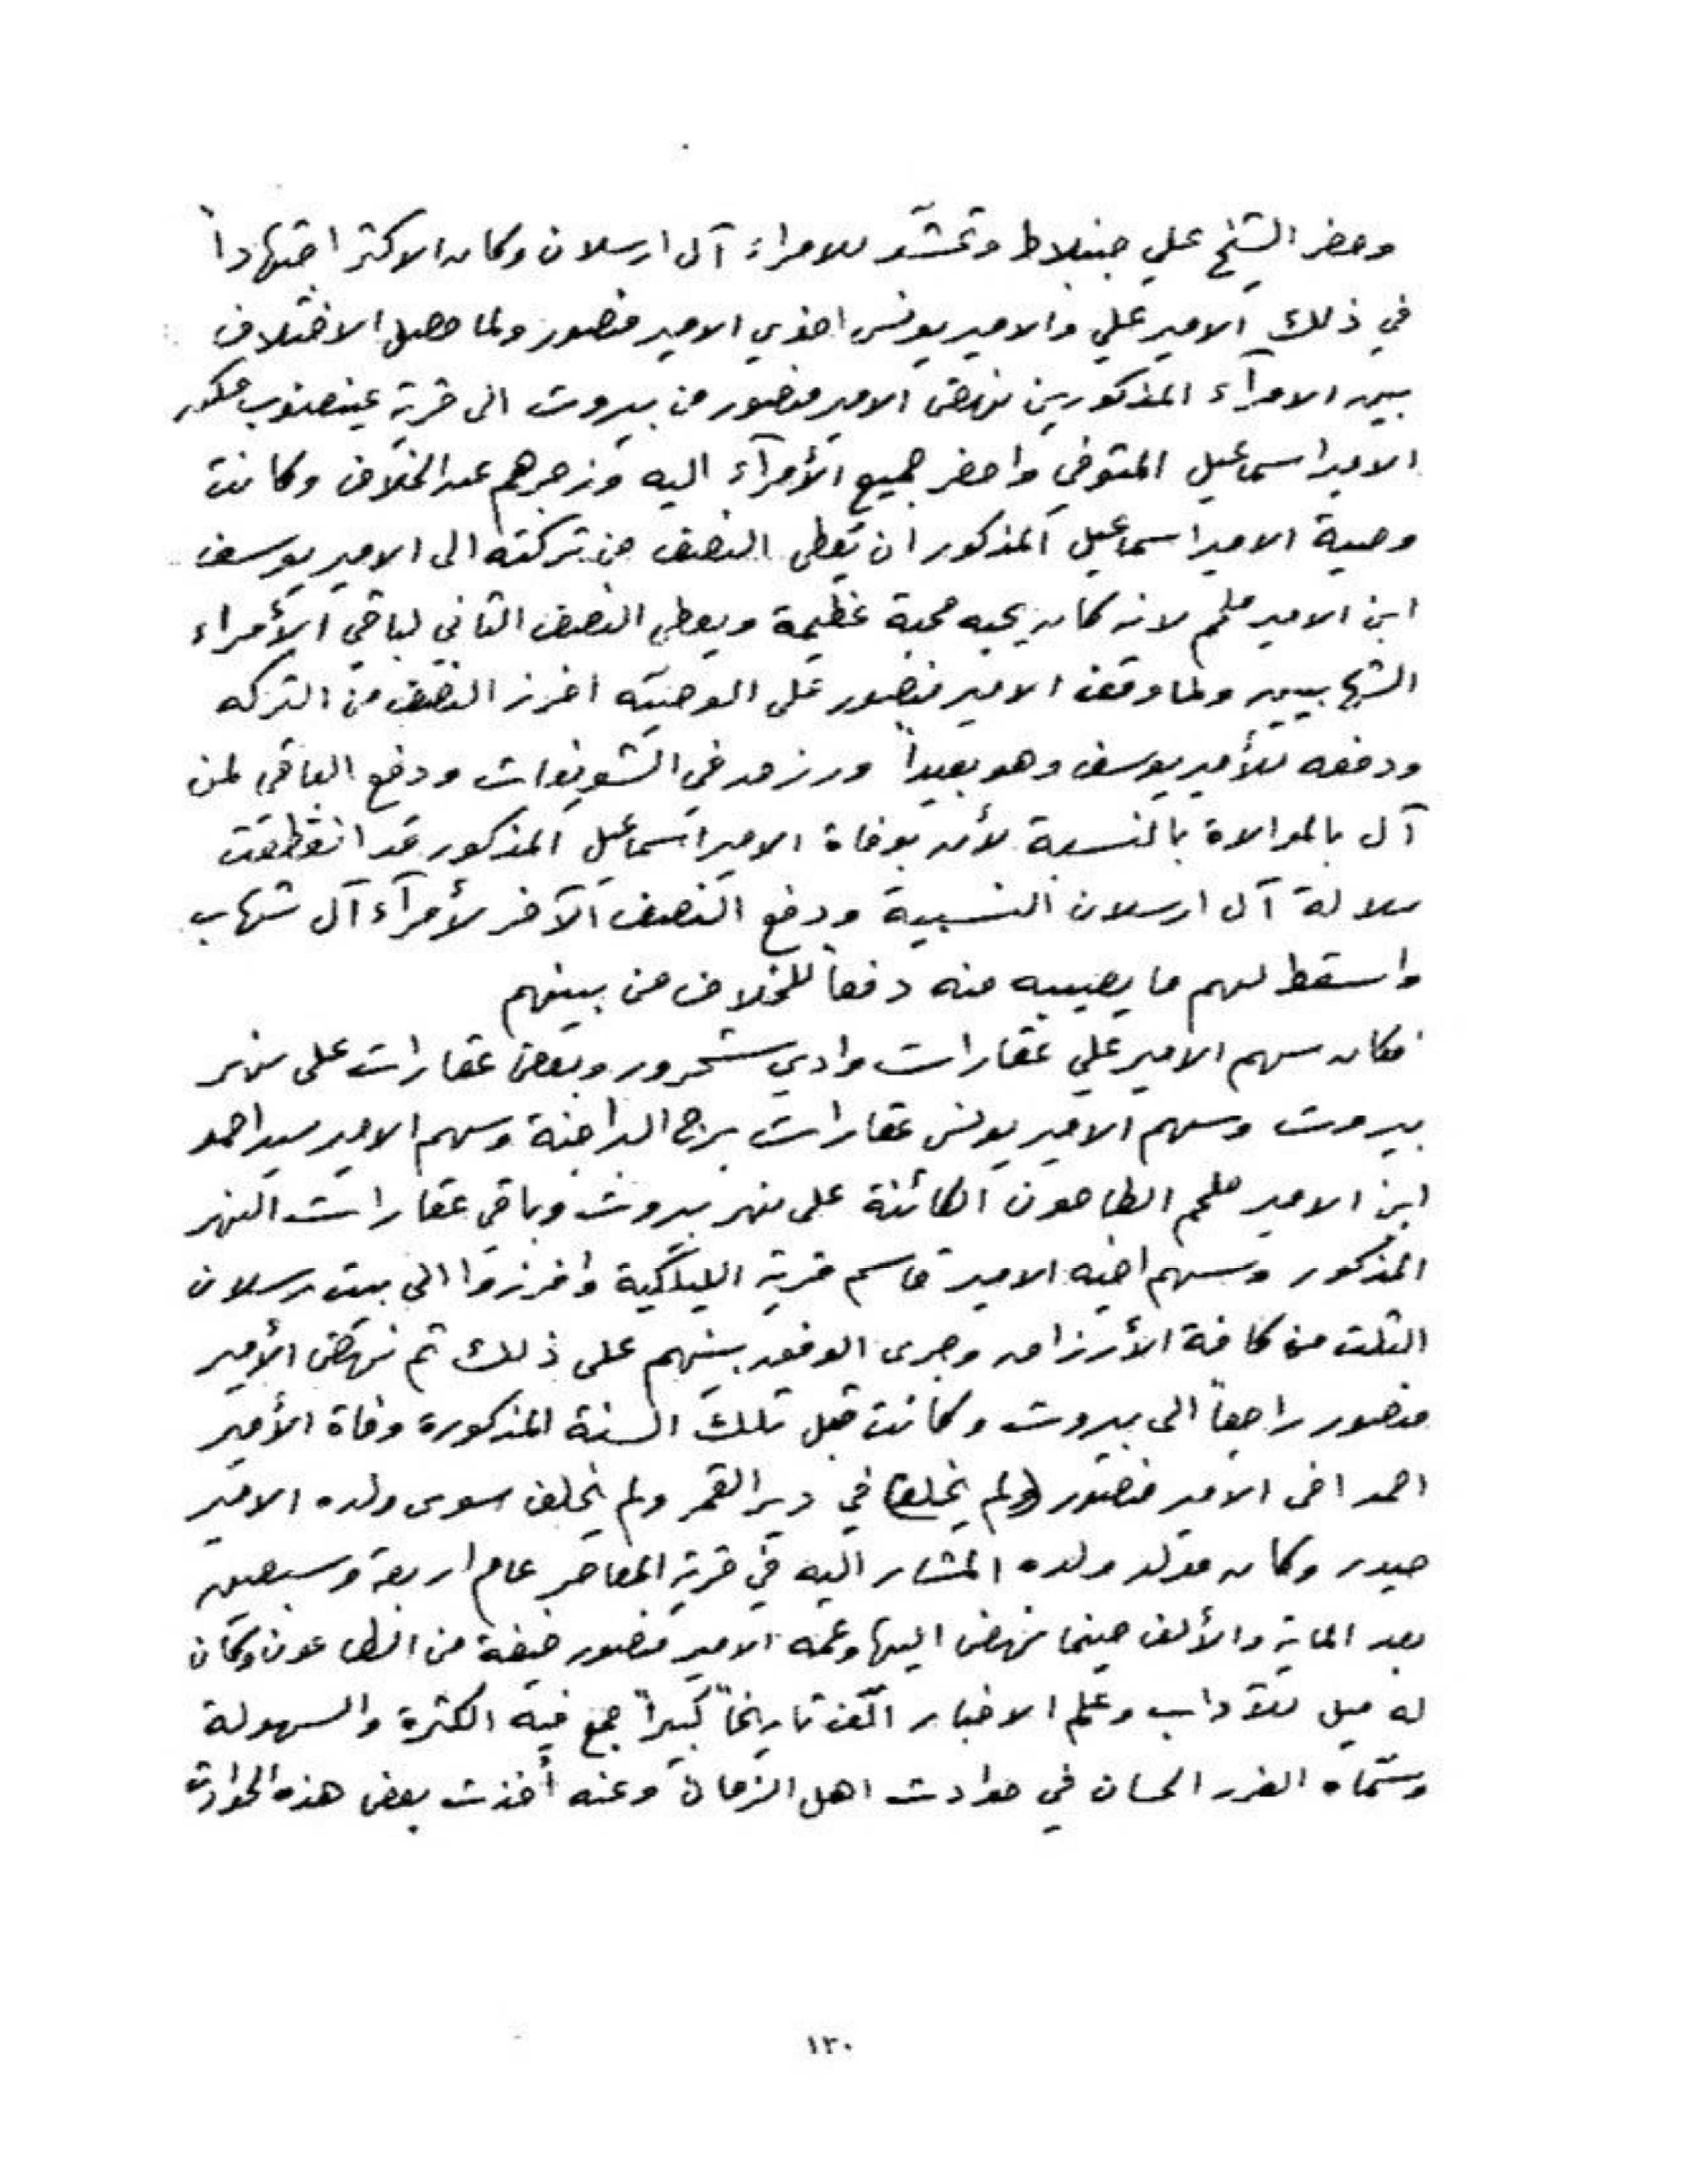 وحضر الشيخ علي جنبلاط وتحشّد للامراء آل ارسلان وكان الاكثر اجتهاداً
في ذلك الامير علي والامير يونس اخوي الامير منصور ولما حصل الاختلاف
بين الامرآء المذكورين نهض الامير منصور من بيروت الى قرية عينعنوب
الامير اسماعيل المتوفي واحضر جميع الأمرآء اليه وزجرهم عن الخلاف وكانت
وصية الامير اسماعيل المذكور ان يعطى النصف من تركته الى الامير يوسف
ابن الامير ملحم لانه كان يحبه محبة عظيمة ويعطى النصف الثاني لباقي الأمراء
الشهابيين ولما وقف الامير منصور على الوصيّه افرز النصف من التركه
ودفعه للأمير يوسف وهو بعيداً ورزمه في الشويفات ودفع الباقي لمن
آل بالموالاة بالنسبة لأنه بوفاة الامير اسماعيل المذكور قد انقطعت
سلالة آل ارسلان النسبية ودفع النصف الآخر لأمرآء آل شهاب
واسقط لهم ما يصيبه منه دفعاً للخلاف من بينهم
فكان سهم الامير علي عقارات وادي شحرور وبعض عقارات على نهر
بيروت وسهم الامير يونس عقارات برج البراجنة وسهم الامير سيد احمد
ابن الامير ملحم الطاحون الكائنة على نهر بيروت وباقي عقارات النهر
المذكور وسهم اخيه الامير قاسم قرية الليلكية وافرزوا الى بيت رسلان
الثلث من كافة الأرزاق وجرى الوفق بينهم على ذلك ثم نهض الأمير
منصور راجعاً الى بيروت وكانت قبل تلك السنة المذكورة وفاة الأمير
احمد اخى الامير منصور (ولم يخلف) في دير القمر ولم يخلف سوى ولده الامير
حيدر وكان مولد ولده المشار اليه في قرية المعاصر عام اربعة وسبعين
بعد الماية والألف حينما نهض اليها وعمه الامير منصور خيفة من الطاعون وكان
له ميل للآداب وعلم الاخبار الّف تاريخاً كبيراً جمع فيه الكثرة والسهولة
وسمّاه الغرر الحسان في حوادث اهل الزمان وعنه أخذت بعض هذه الحوادث
١٣٠